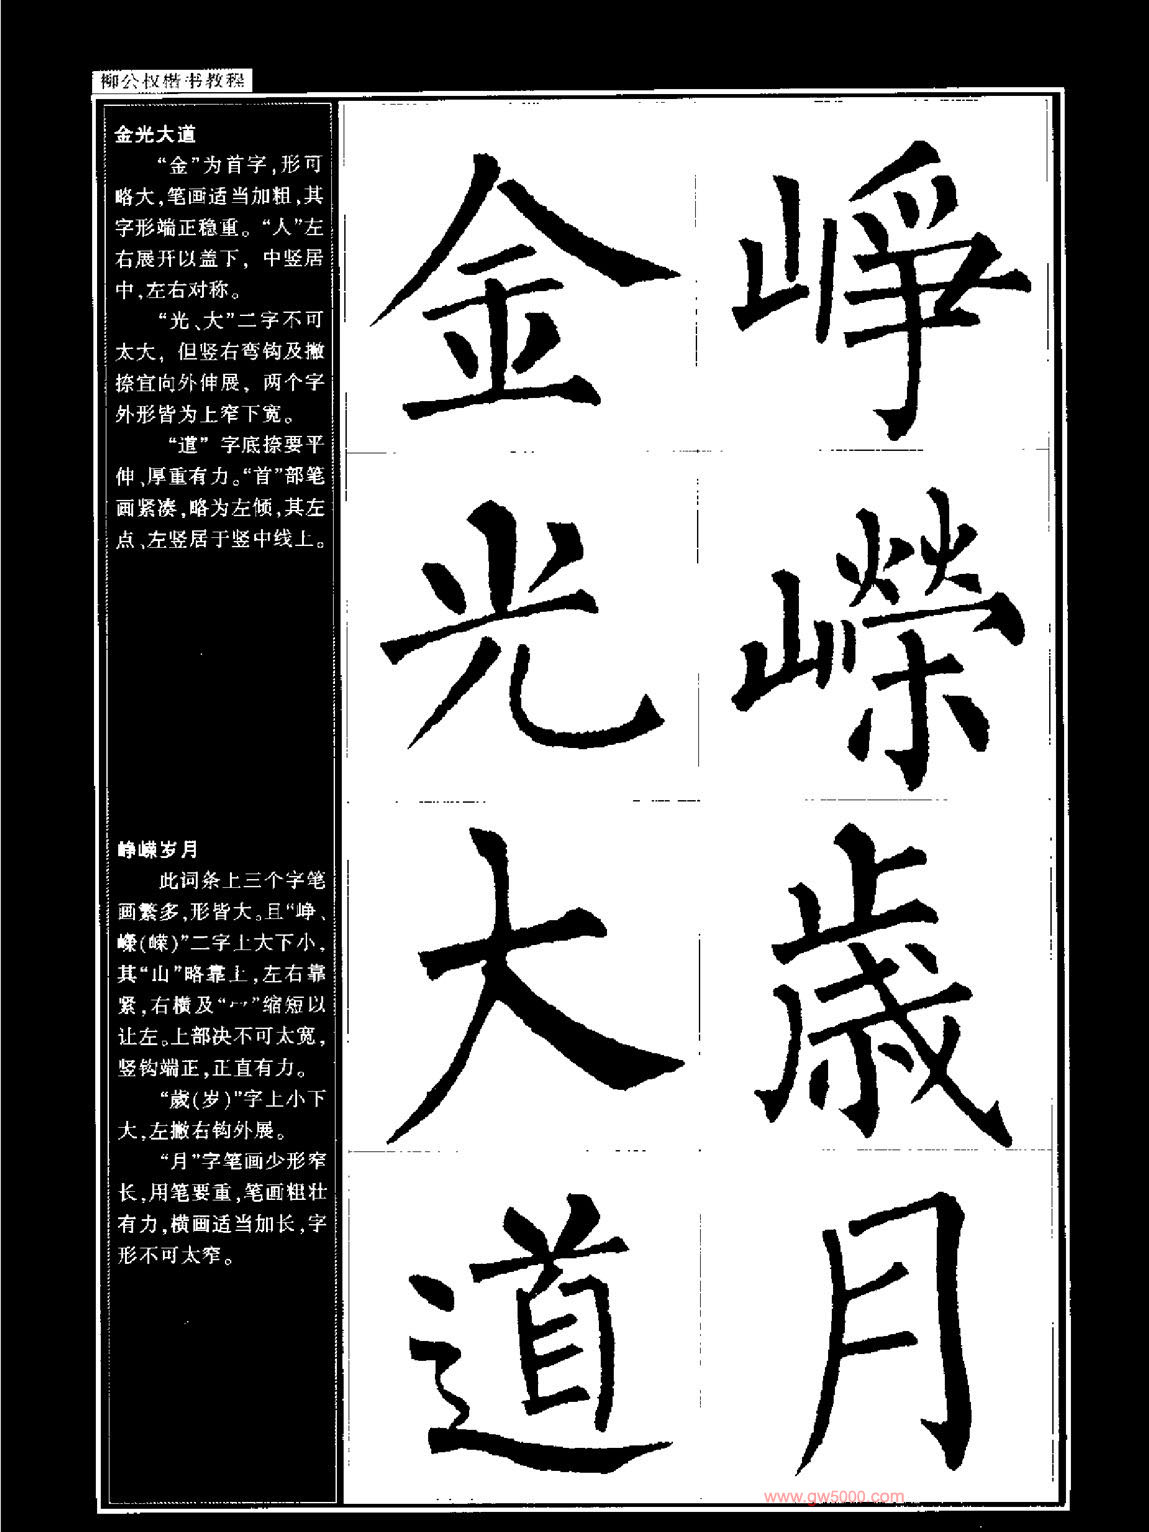 柳公权楷书教程
金光大道
“金”为首字,形可
略大,笔画适当加粗,其
字形端正稳重。“人”左
右展开以盖下，中竖居
中,左右对称。
“光、大”二字不可
太大，但竖右弯钩及撇
捺宜向外伸展，两个字
外形皆为上窄下宽。
“道”字底捺要平
伸、厚重有力。“首”部笔
画紧凑,略为左倾,其左
点、左竖居于竖中线上。
峥嵘岁月
此词条上三个字笔
画繁多,形皆大。且“峥、
嶸(嵘)”二字上大下小,
其“山”略靠上,左右靠
紧,右横及“冖”缩短以
让左。上部决不可太宽,
竖钩端正,正直有力。
“歲(岁)”字上小下
大,左撇右钩外展。
“月”字笔画少形窄
长,用笔要重,笔画粗壮
有力,横画适当加长,字
形不可太窄。
金光大道
崢嶸歲月
www.gw5000.com